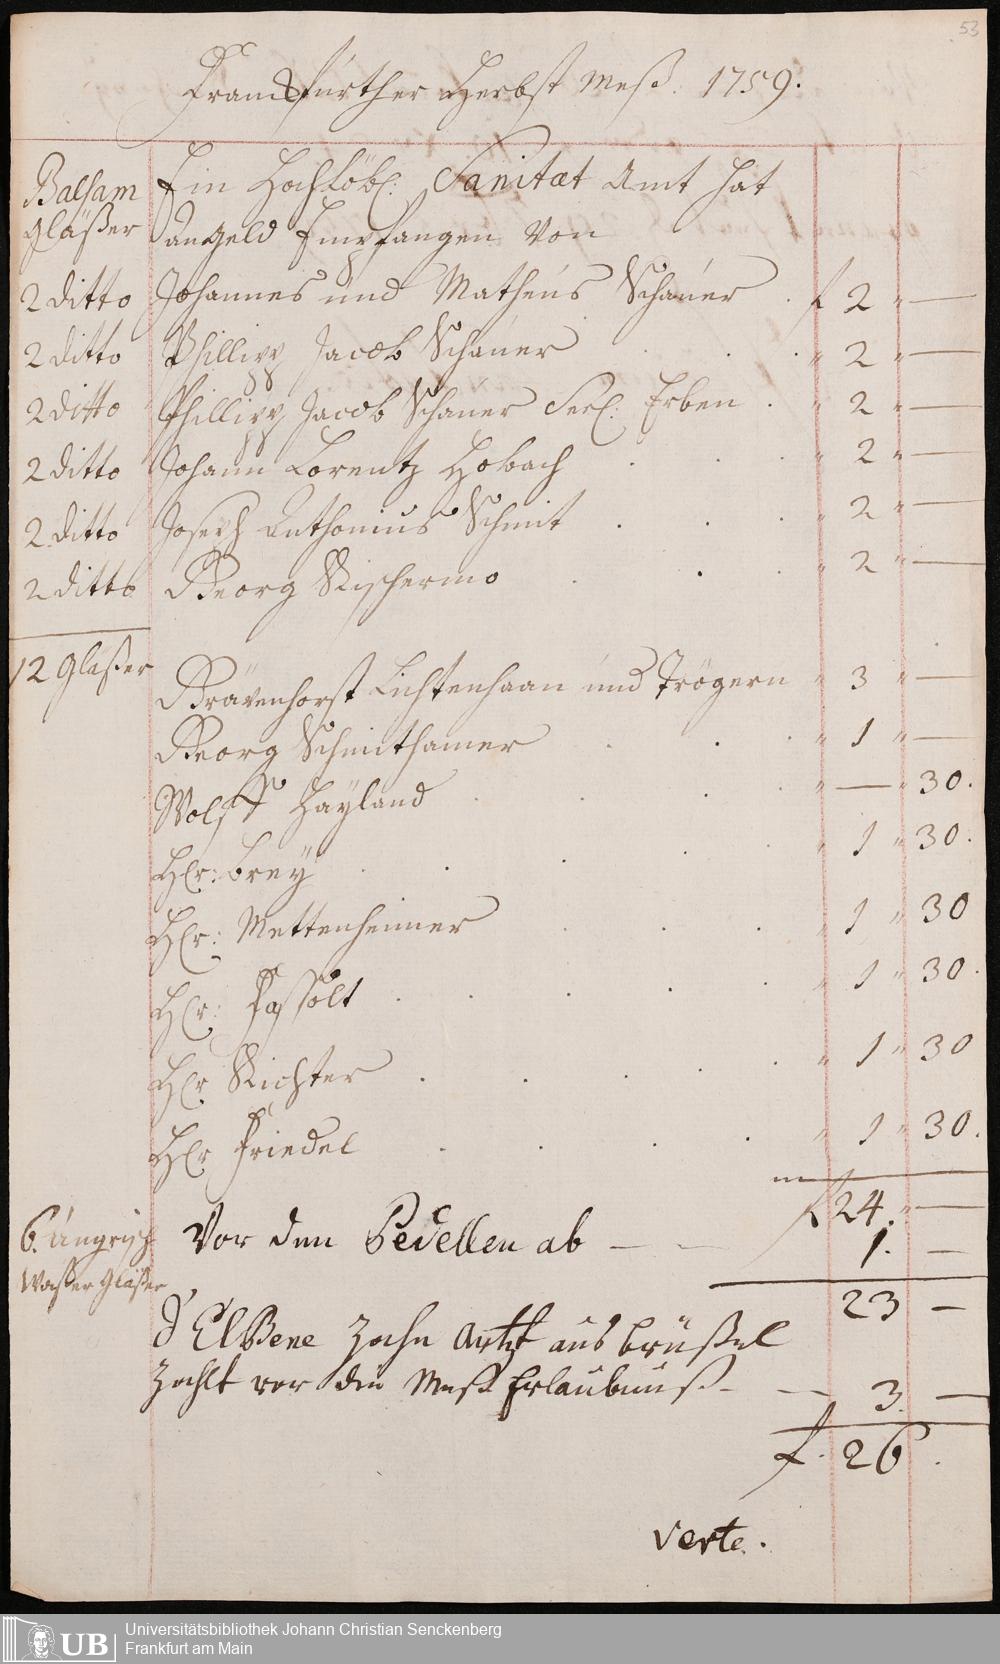 53
Franckfürther Herbst Meß. 1759.
Balsam Ein Hochlöbl: Sanitæt Amt hat
Gläßer an Geld Empfangen Von
2 ditto Johannes und Matheus Schauer . f 2 " —
2 ditto Phillipp Jacob Schauer . . . " 2 " —
2 ditto Phillipp Jacob Schauer Seel: Erben . " 2 " —
2 ditto Johann Lorentz Hobach . . . " 2 " —
2 ditto Joseph Anthonius Schmit . . . " 2 " —
2 ditto Georg Kischermo . . . " 2 " —
12 Gläßer
Grävenhorst Lichtenhaan und Trögern " 3 " —
Georg Schmithamer . . . " 1 " —
Wolff Hayland . . . " — " 30.
Hr: Brey . . . . " 1 " 30.
Hr: Mettenheimer . . . " 1 " 30
Hr: Passolt . . . . . " 1 " 30.
Hr Richter . . . . . " 1 " 30
Hr Friedel . . . . " 1 " 30.
f 24. —
6. Ungrisch Vor den Pedellen ab — — 1. —
Waßer Gläßer
23 —
d' Elßene Zahn Artzt aus Brüßel
zahlt vor die Meß Erlaubnuß — — 3. —
f. 26 .
verte.
UB Universitätsbibliothek Johann Christian Senckenberg
Frankfurt am Main